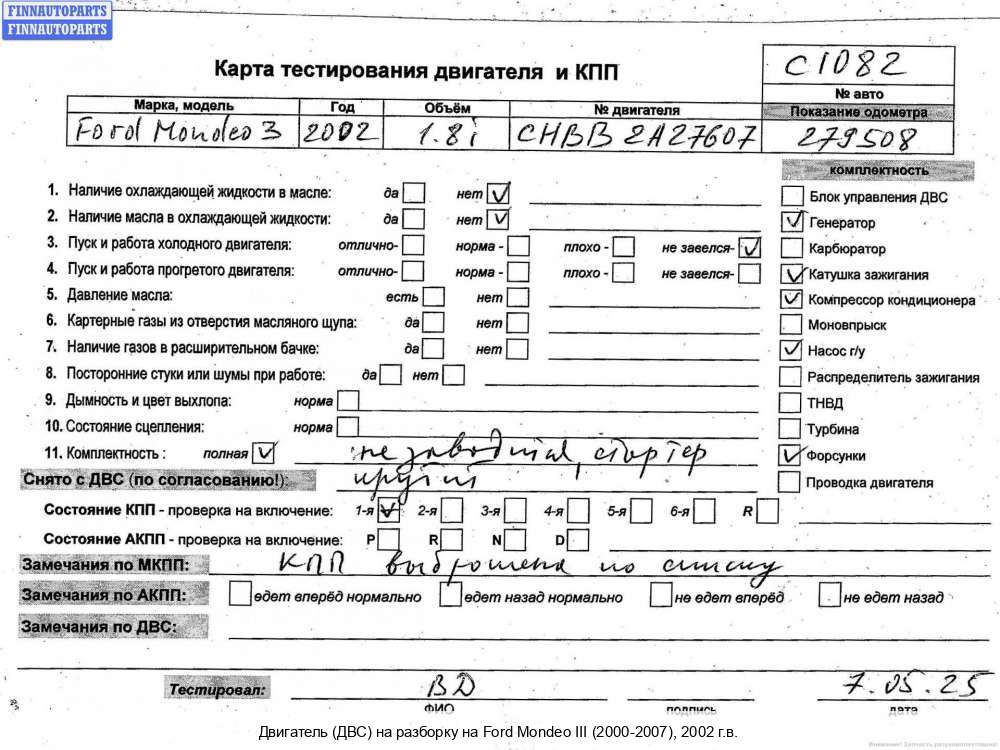 FINNAUTOPARTS
FINNAUTOPARTS
Карта тестирования двигателя и КПП
C1082
№ авто
Марка, модель Год Объём № двигателя Показание одометра
Ford Mondeo 3 2002 1.8i CHBB 2A27607 279508
комплектность
1. Наличие охлаждающей жидкости в масле: да нет
Блок управления ДВС
2. Наличие масла в охлаждающей жидкости: да нет
Генератор
3. Пуск и работа холодного двигателя: отлично- норма - плохо - не завелся-
Карбюратор
4. Пуск и работа прогретого двигателя: отлично- норма - плохо - не завелся-
Катушка зажигания
5. Давление масла: есть нет
Компрессор кондиционера
6. Картерные газы из отверстия масляного щупа: да нет
Моновпрыск
7. Наличие газов в расширительном бачке: да нет
Насос г/у
8. Посторонние стуки или шумы при работе: да нет
Распределитель зажигания
9. Дымность и цвет выхлопа: норма
ТНВД
10. Состояние сцепления: норма
Турбина
11. Комплектность : полная не заводится, стартер
Форсунки
Снято с ДВС (по согласованию!): крутит
Проводка двигателя
Состояние КПП - проверка на включение: 1-я 2-я 3-я 4-я 5-я 6-я R
Состояние АКПП - проверка на включение: P R N D
Замечания по МКПП: КПП выброшена по списку
Замечания по АКПП: едет вперёд нормально едет назад нормально не едет вперёд не едет назад
Замечания по ДВС:
Тестировал: BD 7.05.25
ФИО подпись дата
Двигатель (ДВС) на разборку на Ford Mondeo III (2000-2007), 2002 г.в.